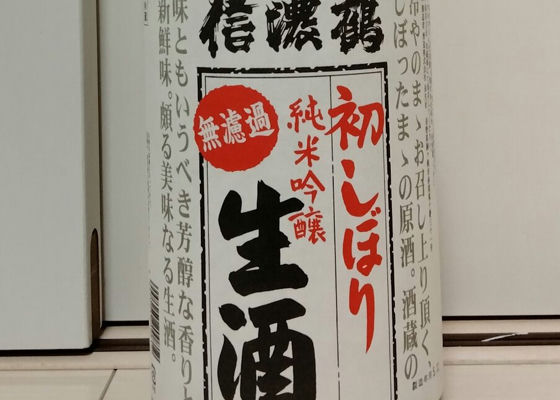 信濃鶴
初しぼり
純米吟醸
無濾過
生酒
冷やのまゝお召し上り頂く、
しぼったまゝの原酒。酒蔵の
味ともいうべき芳醇な香りと
新鮮味。頗る美味なる生酒。